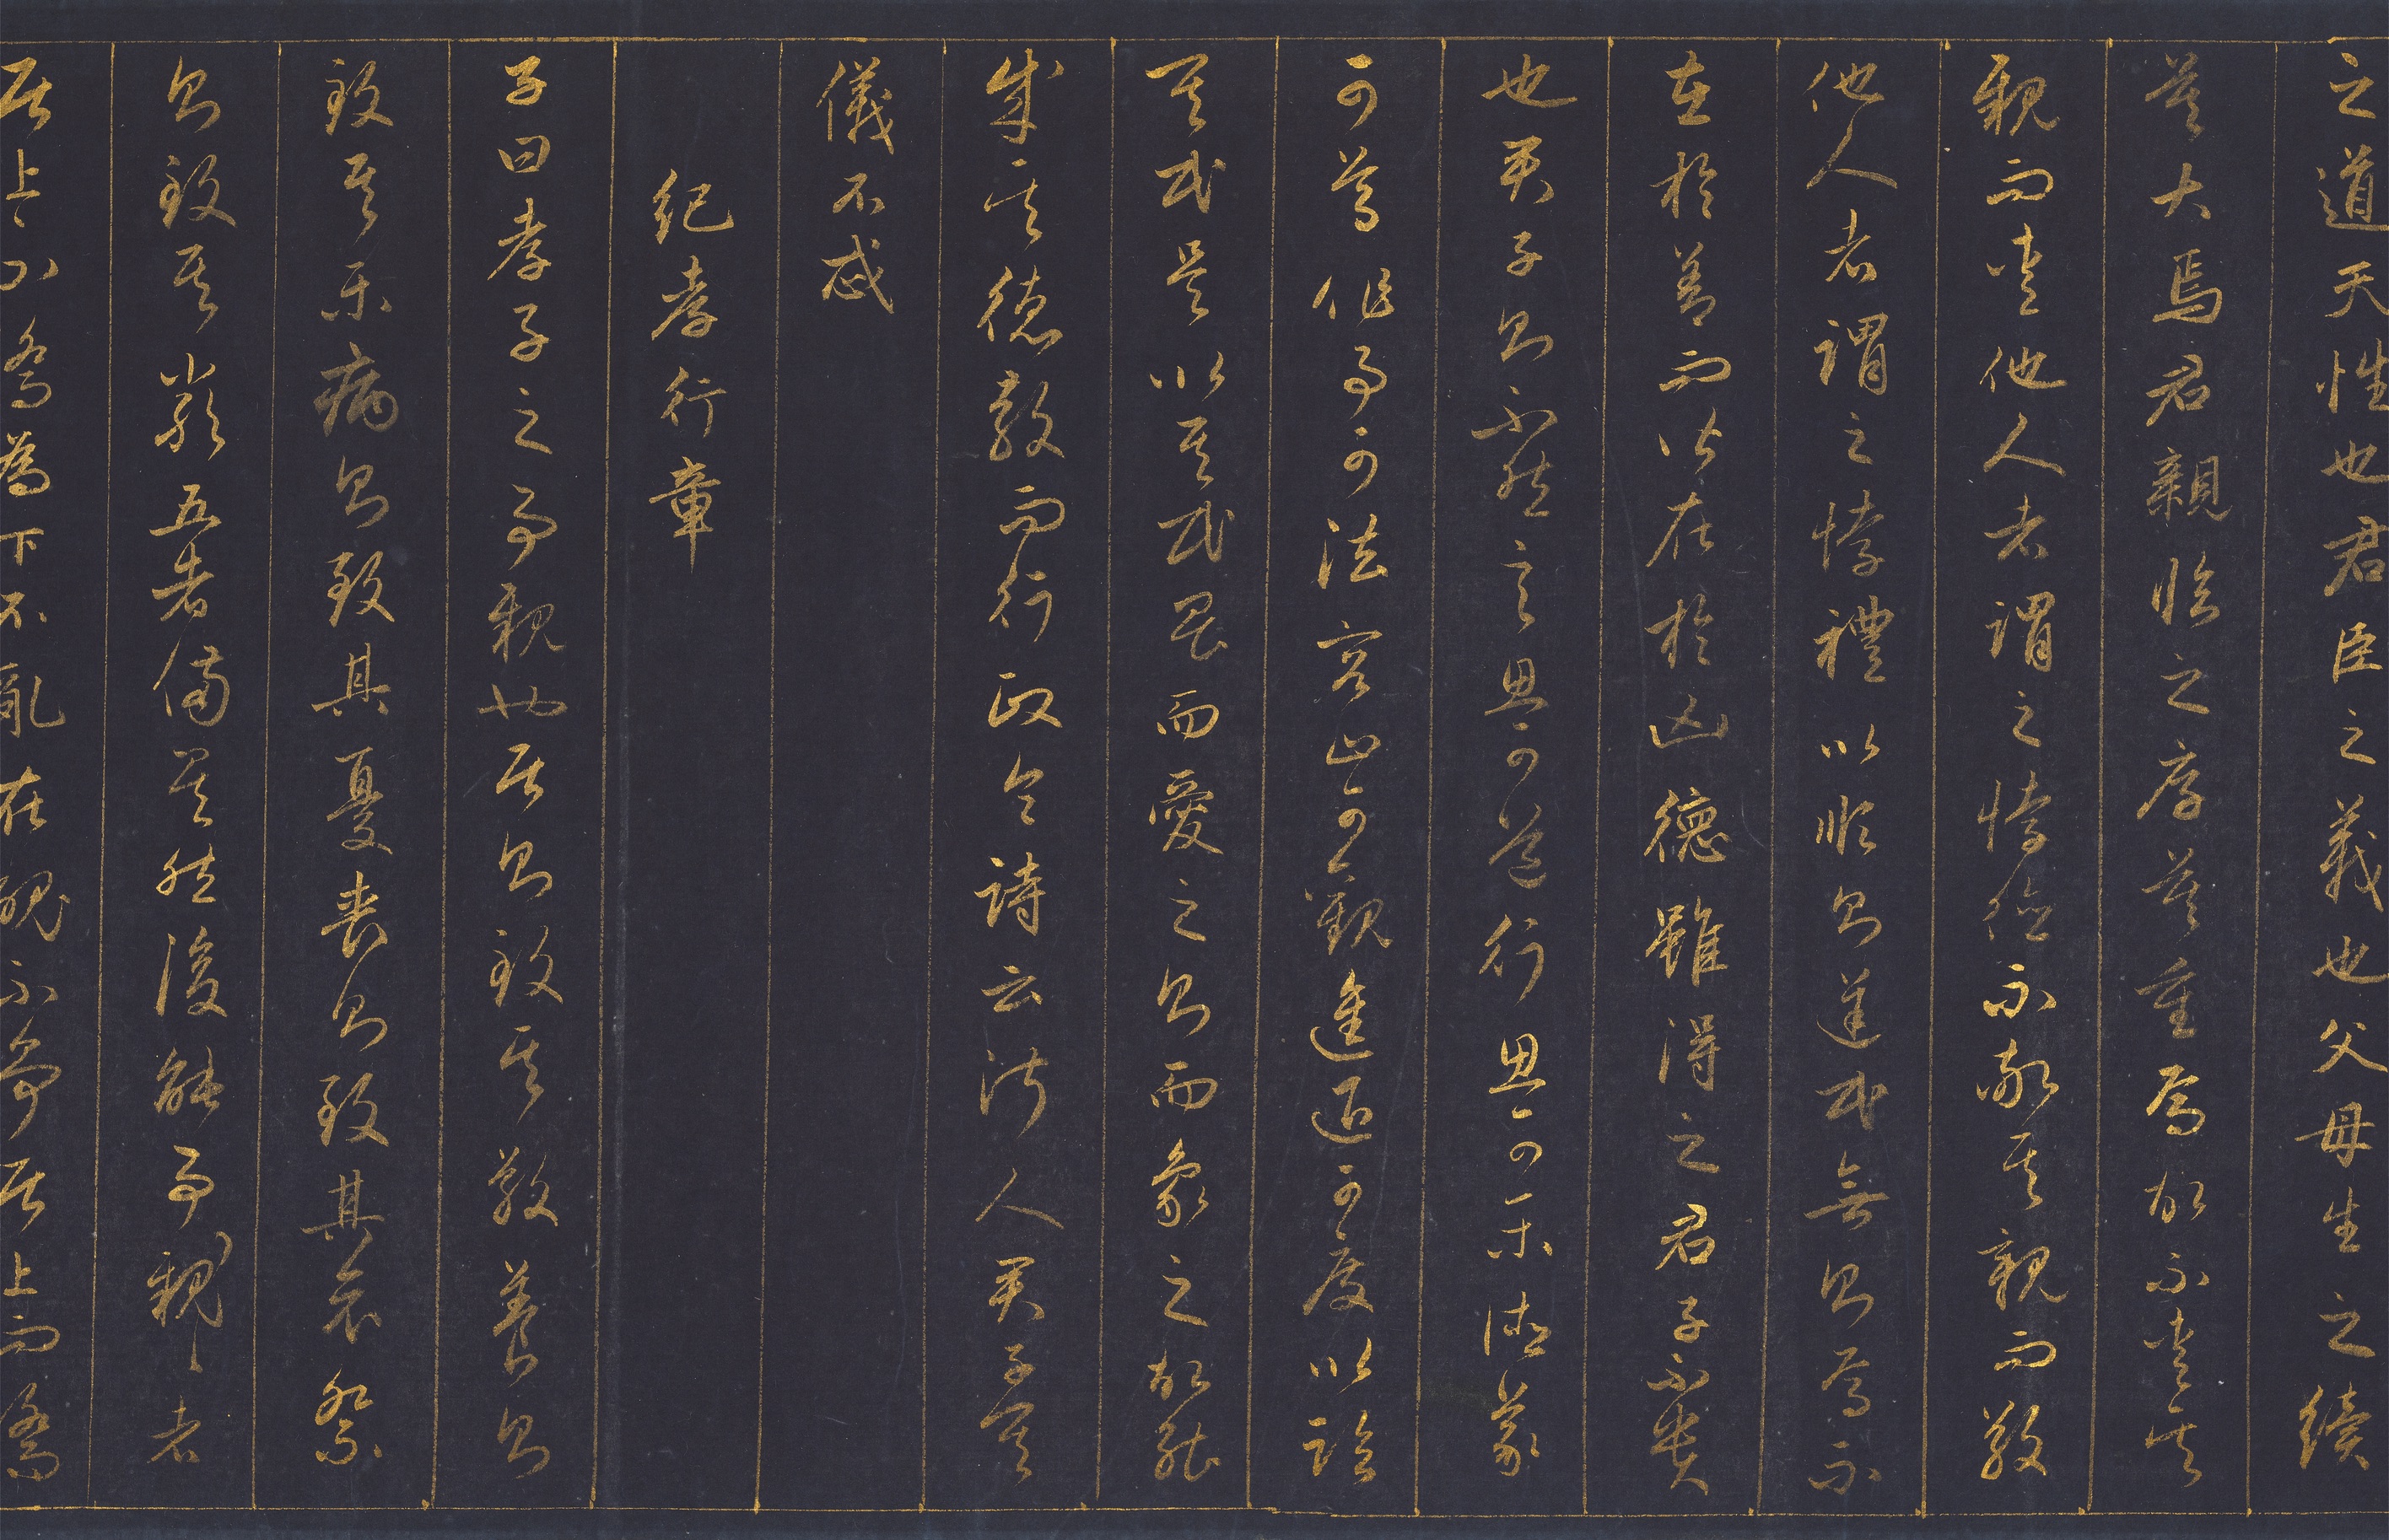 之道天性也君臣之義也父母生之續
莫大焉君親臨之厚莫重焉故不愛其
親而愛他人者謂之悖德不敬其親而敬
他人者謂之悖禮以順則逆民無則焉不
在於善而皆在於凶德雖得之君子不貴
也君子則不然言思可道行思可樂德義
可尊作事可法容止可觀進退可度以臨
其民是以其民畏而愛之則而象之故能
成其德教而行政令詩云淑人君子其
儀不忒
紀孝行章
子曰孝子之事親也居則致其敬養則
致其樂病則致其憂喪則致其哀祭
則致其嚴五者備矣然後能事〻親〻者
居上不驕為下不亂在醜不爭居上而驕